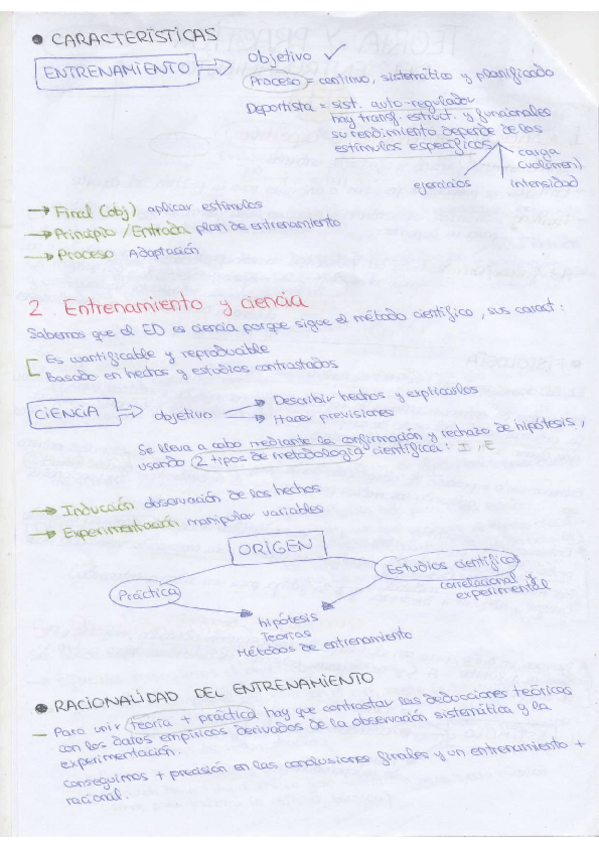 • CARACTERÍSTICAS
ENTRENAMIENTO
Objetivo ✓
Proceso = continuo, sistemático y planificado
Deportista = sist. auto-regulador
hay transf. estruct. y funcionales
su rendimiento depende de los
estímulos específicos
ejercicios
carga
(volumen)
intensidad
→ Final (obj) aplicar estímulos
→ Principio / Entrada plan de entrenamiento
→ Proceso Adaptación
2. Entrenamiento y ciencia
Sabemos que el ED es ciencia porque sigue el método científico, sus caract:
[ Es cuantificable y reproducable
Basado en hechos y estudios contrastados
CIENCIA
objetivo
→ Describir hechos y explicarlos
→ Hacer previsiones
Se lleva a cabo mediante la confirmación y rechazo de hipótesis,
usando 2 tipos de metodología científica: I, E
→ Inducción observación de los hechos
→ Experimentación manipular variables
ORIGEN
Práctica
Estudios científicos
correlacional y
experimental
hipótesis
Teorías
Métodos de entrenamiento
• RACIONALIDAD DEL ENTRENAMIENTO
– Para unir teoría + práctica hay que contrastar las deducciones teóricas
con los datos empíricos derivados de la observación sistemática y la
experimentación.
conseguimos + precisión en las conclusiones finales y un entrenamiento +
racional.